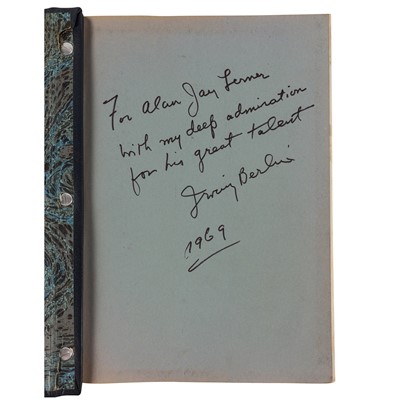 For Alan Jay Lerner
with my deep admiration
for his great talent
Irving Berlin
1969